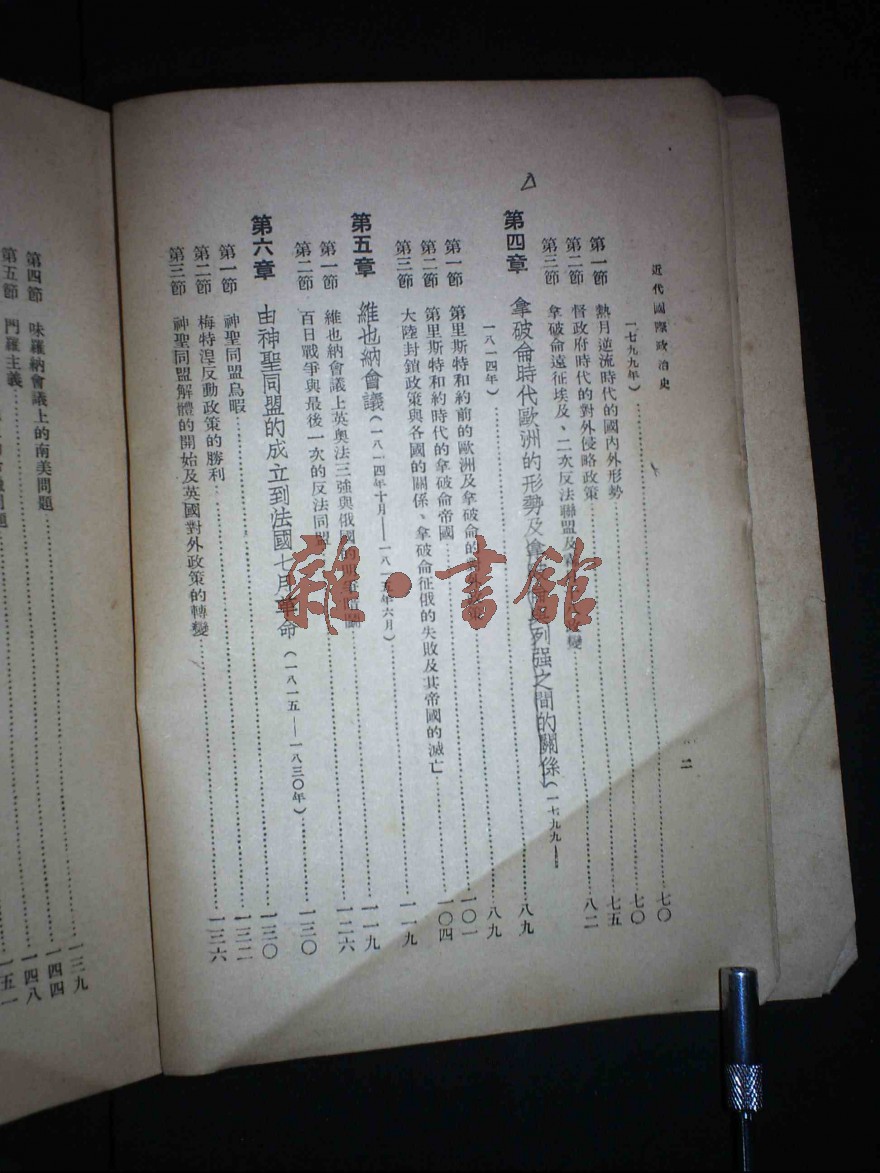 近代國際政治史
二
一七九九年)……七〇
第一節 熱月逆流時代的國內外形勢……七〇
第二節 督政府時代的對外侵略政策……七五
第三節 拿破侖遠征埃及、二次反法聯盟及 變……八二
第四章 拿破侖時代歐洲的形勢及 列強之間的關係(一七九九—
一八一四年)……八九
第一節 第里斯特和約前的歐洲及拿破侖的……八九
第二節 第里斯特和約時代的拿破侖帝國……一〇一
第三節 大陸封鎖政策與各國的關係、拿破侖征俄的失敗及其帝國的滅亡……一〇四
第五章 維也納會議(一八一四年十月—一八一五年六月)……一一九
第一節 維也納會議上英奧法三強與俄國的……一一九
第二節 百日戰爭與最後一次的反法同盟……一二六
第六章 由神聖同盟的成立到法國七月革命(一八一五—一八三〇年)……一三〇
第一節 神聖同盟烏瞰……一三〇
第二節 梅特涅反動政策的勝利……一三二
第三節 神聖同盟解體的開始及英國對外政策的轉變……一三六
第四節 味羅納會議上的南美問題……一三九
第五節 門羅主義……一四四
一四八
一五一
雜·書館